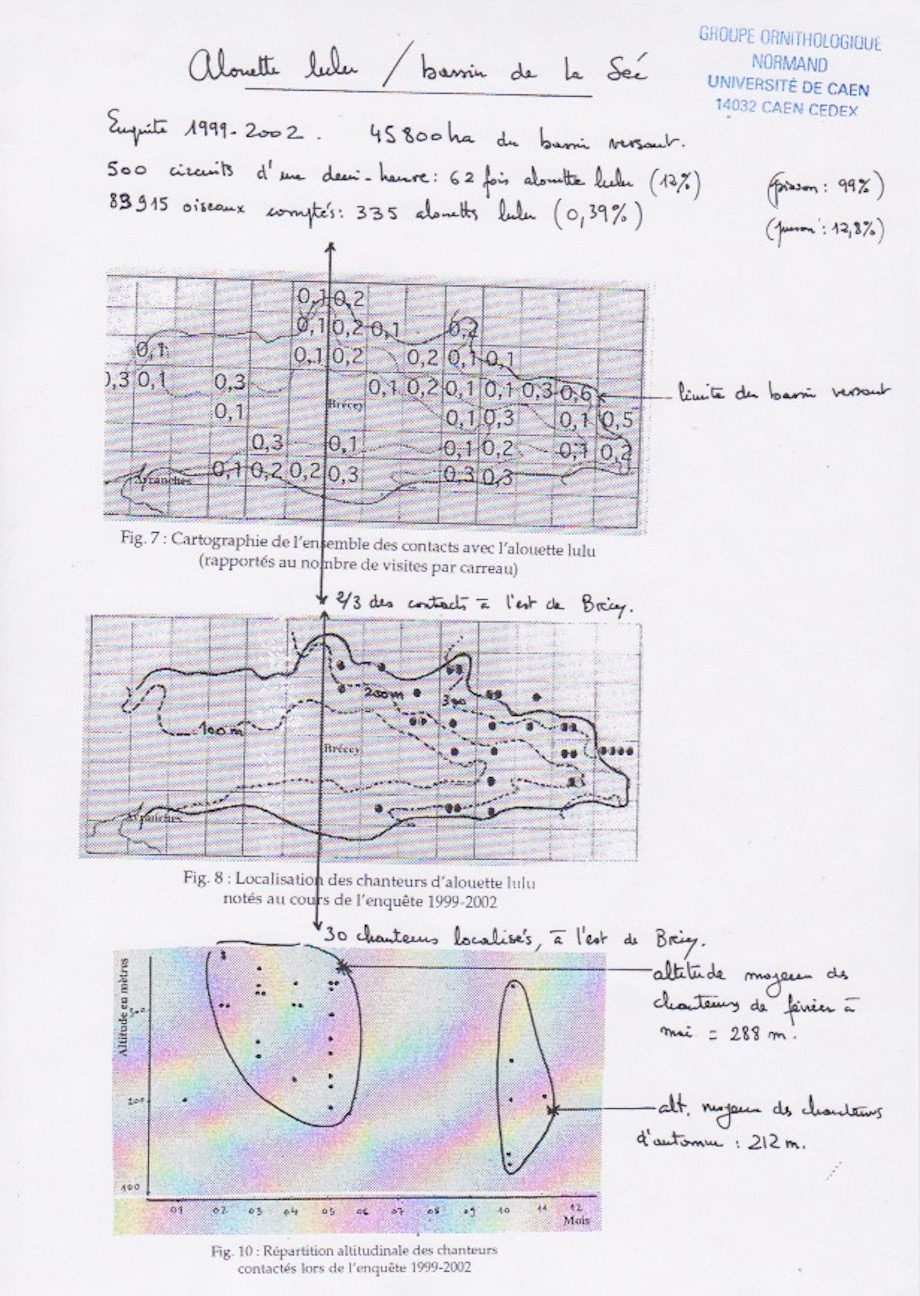 Alouette lulu / bassin de la Séé
GROUPE ORNITHOLOGIQUE
NORMAND
UNIVERSITÉ DE CAEN
14032 CAEN CEDEX
Enquête 1999-2002. 45800ha du bassin versant.
500 circuits d'une demi-heure: 62 fois alouette lulu (12%) (pinson: 99%)
83915 oiseaux comptés: 335 alouettes lulu (0,39%) (pinson: 12,8%)
0,1 0,2
0,1 0,2 0,1 0,2
0,1 0,1 0,2 0,2 0,1 0,1
0,3 0,1 0,3 0,1 0,2 0,1 0,1 0,3 0,6 limite du bassin versant
0,1 Brécey 0,1 0,3 0,1 0,5
0,3 0,1 0,1 0,2 0,1 0,2
Avranches 0,1 0,2 0,2 0,3 0,3 0,3
Fig. 7 : Cartographie de l'ensemble des contacts avec l'alouette lulu
(rapportés au nombre de visites par carreau)
2/3 des contacts à l'est de Brécey.
200m 300
100m
Brécey
Avranches
Fig. 8 : Localisation des chanteurs d'alouette lulu
notés au cours de l'enquête 1999-2002
30 chanteurs localisés, à l'est de Brécey.
altitude moyenne des
chanteurs de février à
mai = 288 m.
alt. moyenne des chanteurs
d'automne : 212 m.
Altitude en mètres
300
200
100
01 02 03 04 05 06 07 08 09 10 11 12
Mois
Fig. 10 : Répartition altitudinale des chanteurs
contactés lors de l'enquête 1999-2002